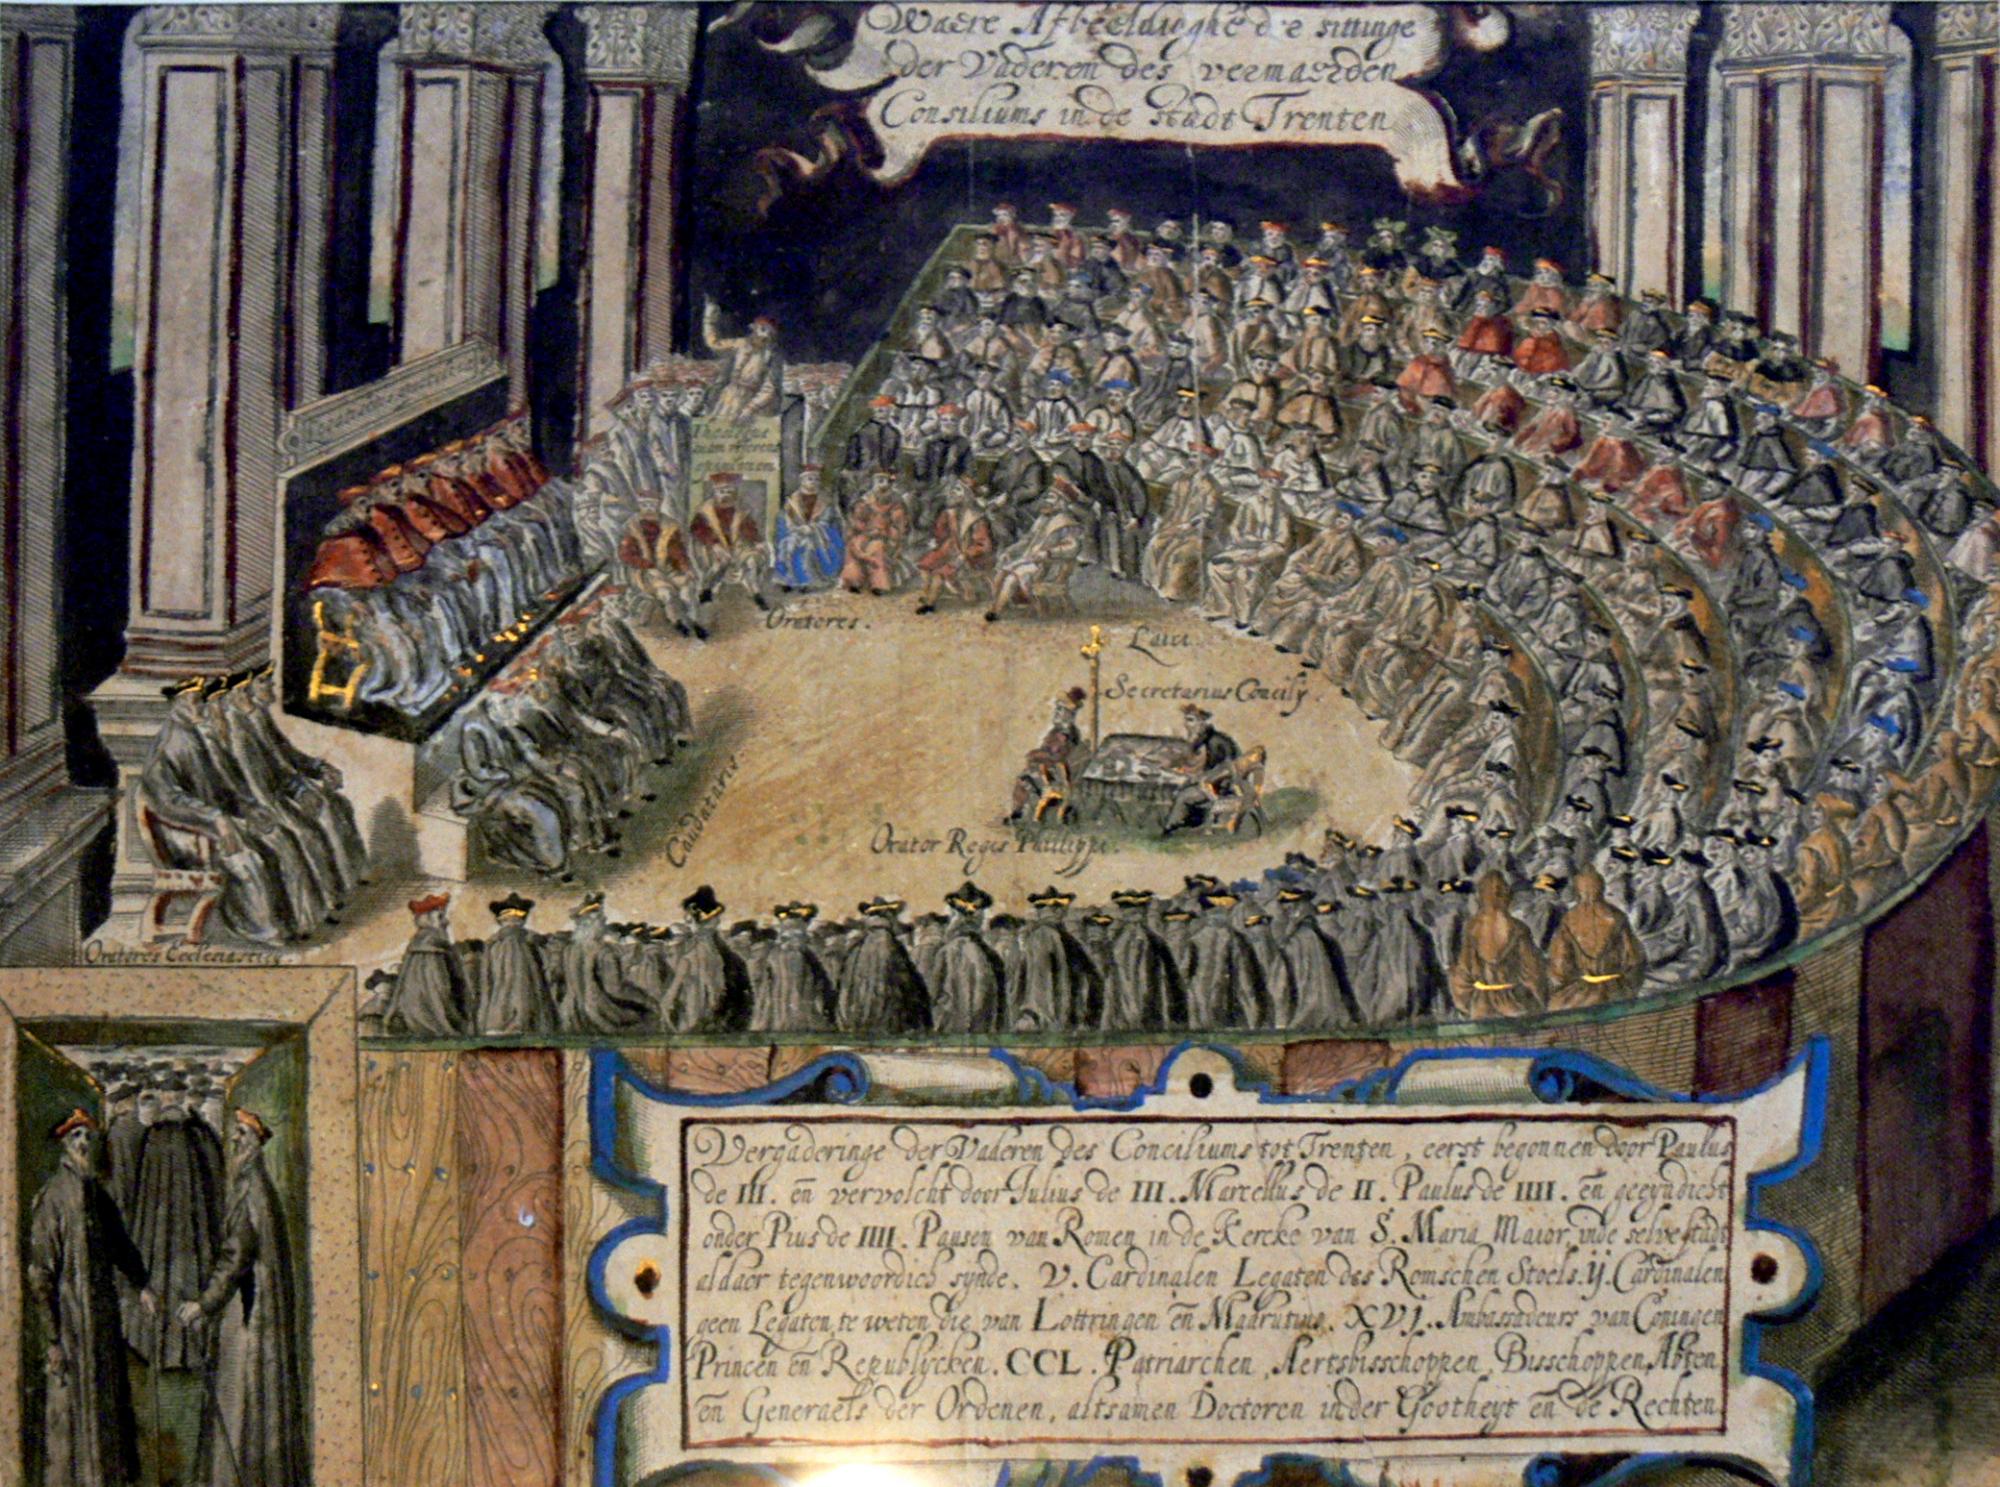 Waere Afbeeldighe de sittinge
der Vaderen des vermaerden
Consiliums in de stadt Trenten
Theologus
opinionem
Oratores.
Laici
Secretarius Concily.
Caudataris.
Orator Regis Philippi.
Oratores Ecclesiastici.
Vergaderinge der Vaderen des Conciliums tot Trenten, eerst begonnen door Paulus
de III. en̄ vervolcht door Julius de III. Marcellus de II. Paulus de IIII. en̄ geeyndicht
onder Pius de IIII. Pausen van Romen in de Kercke van S. Maria Maior, inde selve stadt
aldaer tegenwoordich synde. V. Cardinalen Legaten des Romschen Stoels. ij. Cardinalen
geen Legaten, te weten die van Lottringen en̄ Madrutius. XVj. Ambassadeurs van Coningen
Princen en̄ Republycken. CCL. Patriarchen, Aertsbisschoppen, Bisschoppen, Abten
en̄ Generaels der Ordenen, altsamen Doctoren in der Gootheyt en̄ de Rechten